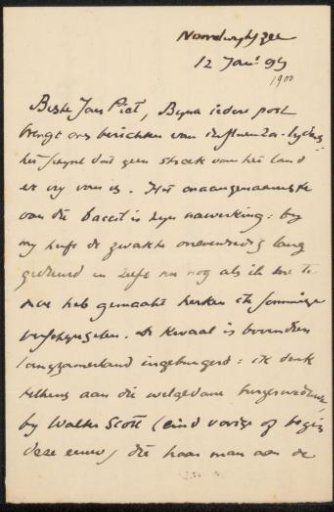 Noordwijk Zee
12 Jan. 99
1900
Beste Jan Piet, Bijna iedere post
brengt ons berichten van influenza-lijders
het schijnt dat geen streek van het land
er vrij van is. Het onaangenaamste
van die bacil is zijn nawerking: by
my heeft de zwakte onevenredig lang
geduurd en zelfs nu nog als ik me te
moe heb gemaakt herken ik sommige
verschijnselen. De kwaal is bovendien
langzamerhand ingeburgerd: ik denk
telkens aan die welgedane burgerjuffrouw
by Walter Scott (eind vorige of begin
deze eeuw) die haar man aan de